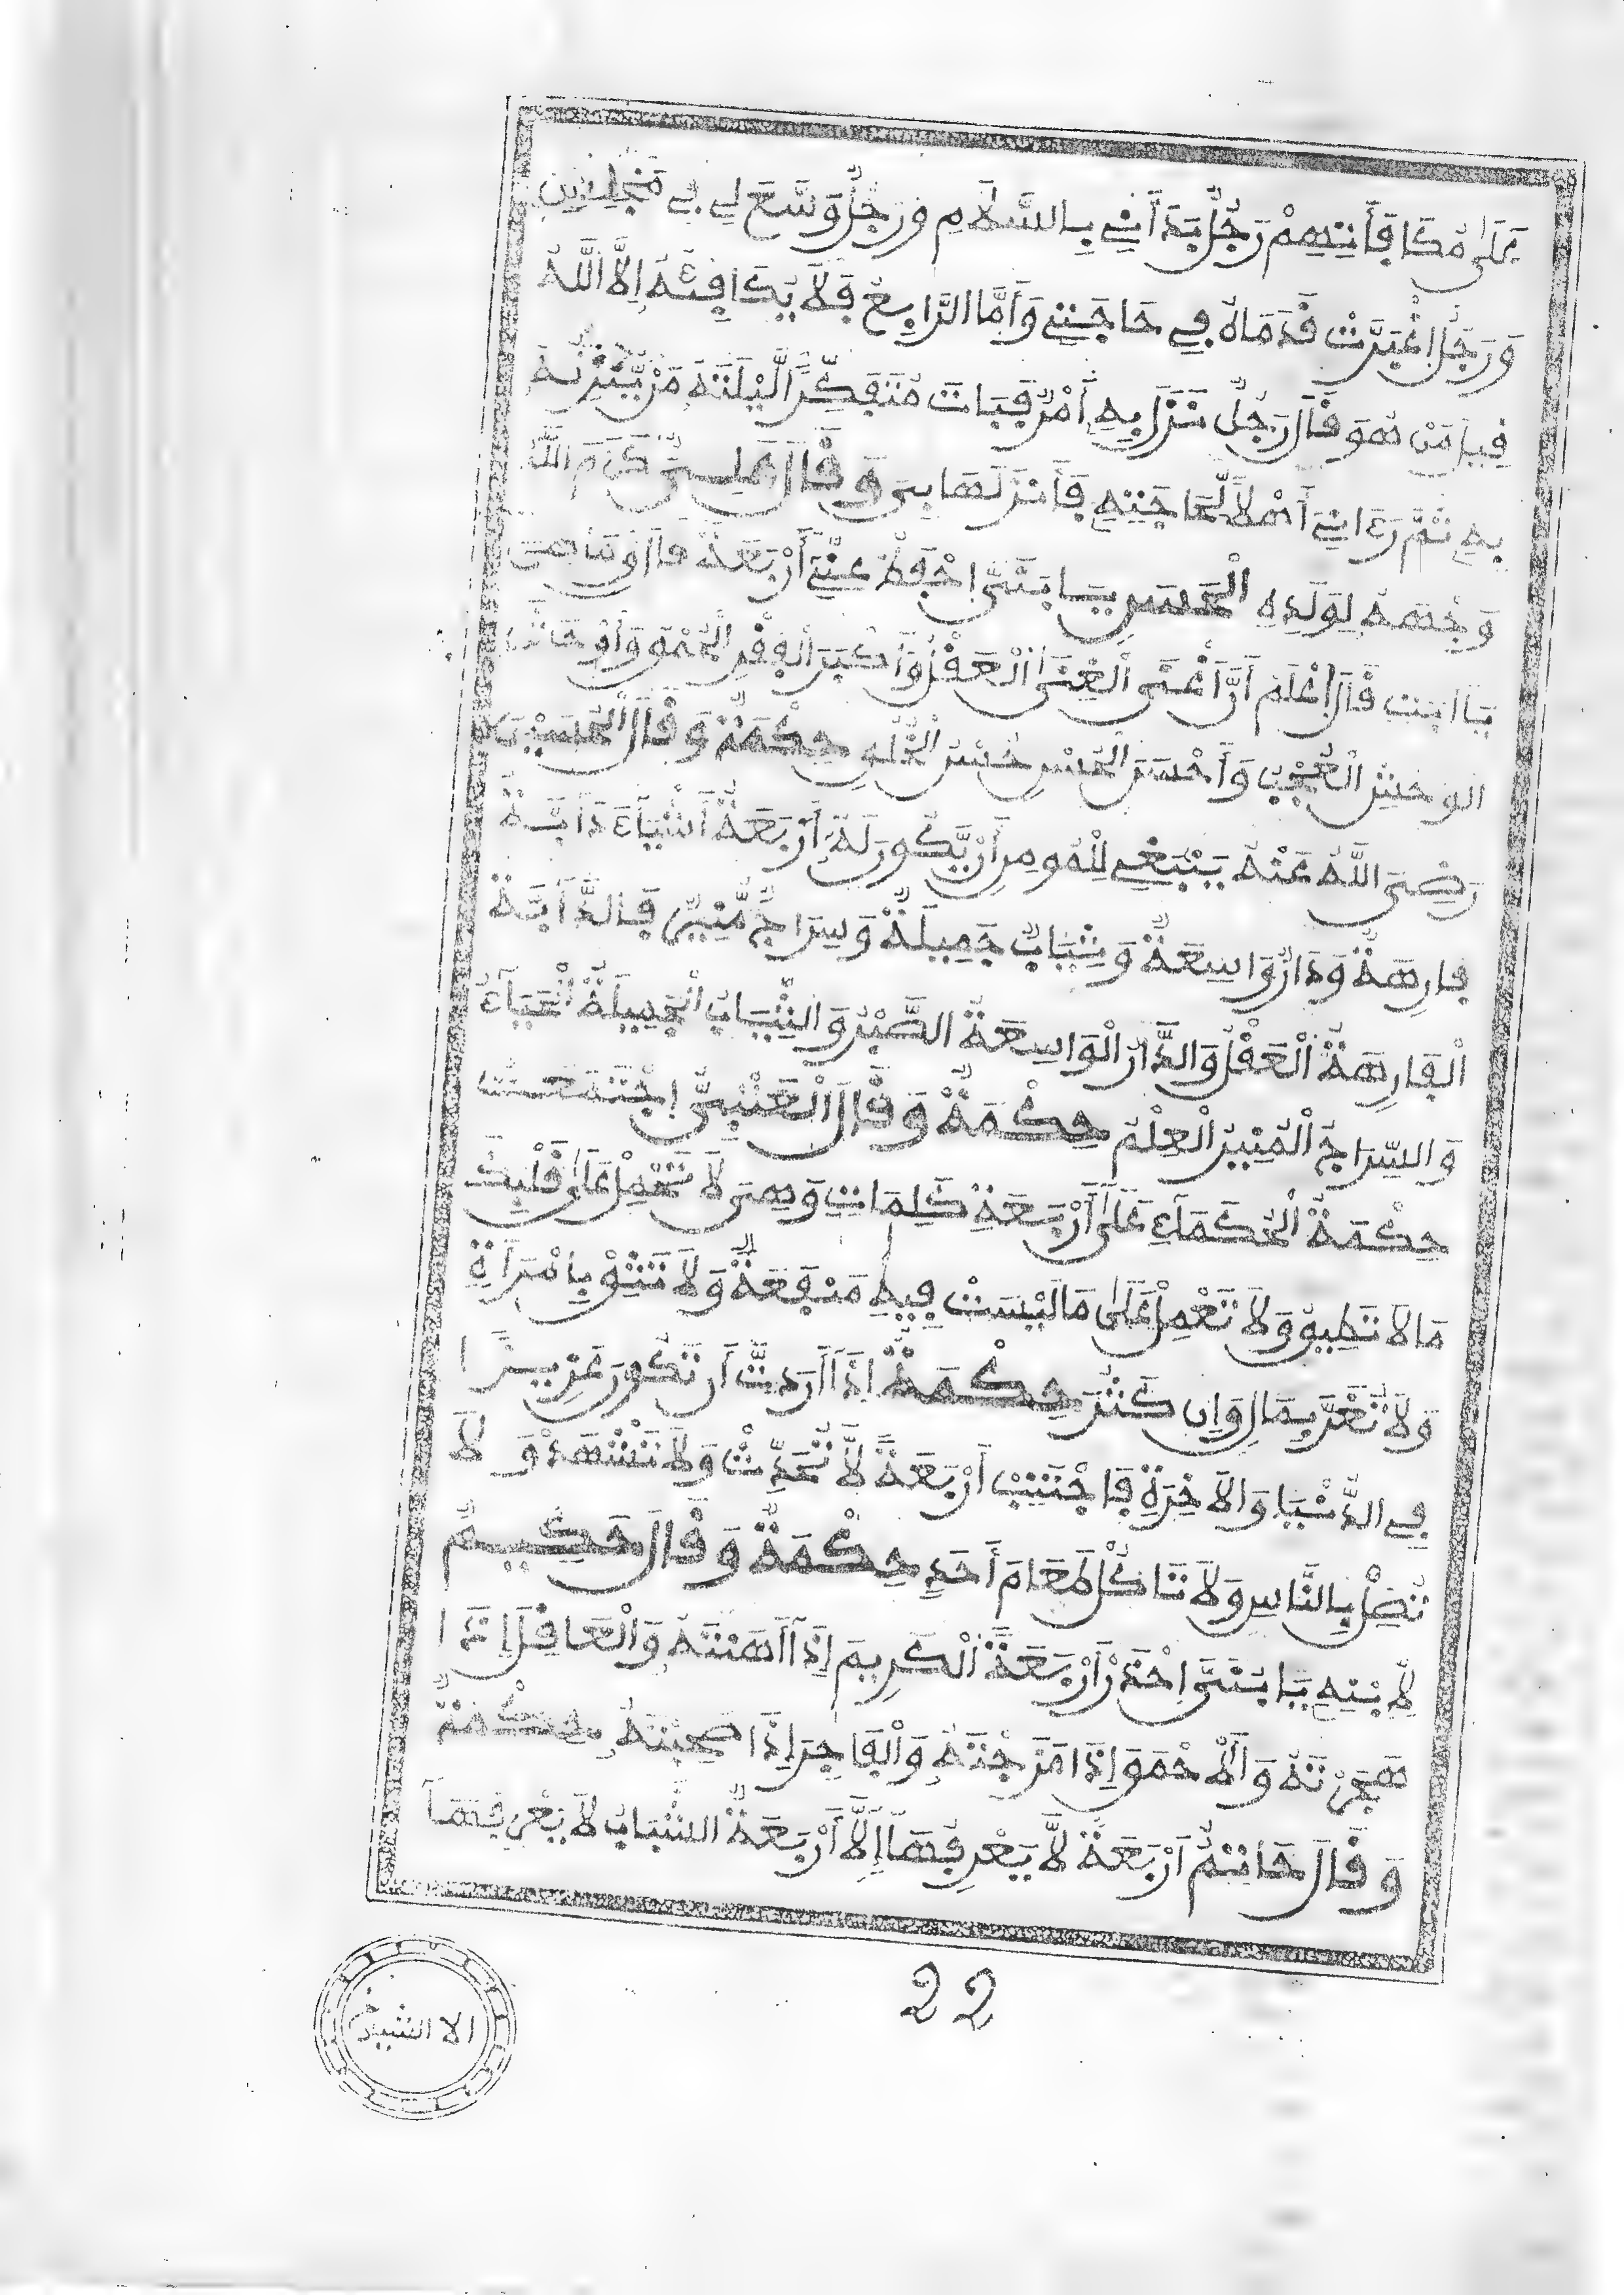 عَلَى مُكَافَأَتِهِمْ رَجُلٌ بَدَأَنِي بِالسَّلَامِ وَرَجُلٌ وَسَّعَ لِي فِي مَجْلِسٍ
وَرَجُلٌ اغْبَرَّتْ قَدَمَاهُ فِي حَاجَتِي وَأَمَّا الرَّابِعُ فَلَا يُكَافِئُهُ إِلَّا اللَّهُ
قِيلَ مَنْ هُوَ قَالَ رَجُلٌ نَزَلَ بِهِ أَمْرٌ فَبَاتَ مُتَفَكِّرًا لَّيْلَتَهُ مَنْ يُّنْزِلُهُ
بِهِ ثُمَّ رَءَانِي أَهْلًا لِّحَاجَتِهِ فَأَنْزَلَهَا بِي وَقَالَ عَلِيٌّ كَرَّمَ اللَّهُ
وَجْهَهُ لِوَلَدِهِ الْحَسَنِ يَا بُنَيَّ احْفَظْ عَنِّي أَرْبَعَةً قَالَ وَمَا هِيَ
يَا ابَتِ قَالَ اعْلَمْ أَنَّ أَغْنَى الْغِنَى الْعَقْلُ وَأَكْبَرَ الْفَقْرِ الْحُمْقُ وَأَوْحَشَ
الْوَحْشِ الْعُجْبُ وَأَحْسَنَ الْحُسْنِ حُسْنُ الْخُلُقِ حِكْمَةٌ وَقَالَ الْحُسَيْنُ
رَضِيَ اللَّهُ عَنْهُ يَنْبَغِي لِلْمُومِنِ أَنْ يَّكُونَ لَهُ أَرْبَعَةُ أَشْيَآءَ دَآبَّةٌ
فَارِهَةٌ وَدَارٌ وَاسِعَةٌ وَثِيَابٌ جَمِيلَةٌ وَسِرَاجٌ مُّنِيرٌ فَالدَّآبَّةُ
الْفَارِهَةُ الْعَقْلُ وَالدَّارُ الْوَاسِعَةُ الصَّبْرُ وَالثِّيَابُ الْجَمِيلَةُ الْحَيَآءُ
وَالسِّرَاجُ الْمُنِيرُ الْعِلْمُ حِكْمَةٌ وَقَالَ الْعُتْبِيُّ اجْتَمَعَتْ
حِكْمَةُ الْحُكَمَآءِ عَلَى أَرْبَعَةِ كَلِمَاتٍ وَهِيَ لَا تَحْمِلْ عَلَى قَلْبِكَ
مَا لَا تُطِيقُ وَلَا تَعْمِلْ عَلَى مَا لَيْسَتْ فِيهِ مَنْفَعَةٌ وَلَا تَثِقْ بِامْرَأَةٍ
وَلَا تَغْتَرَّ بِمَالٍ وَإِن كَثُرَ حِكْمَةٌ إِذَا أَرَدتَّ أَن تَكُونَ عَزِيزًا
فِي الدُّنْيَا وَالْآخِرَةِ فَاجْتَنِبْ أَرْبَعَةً لَّا تُحَدِّثْ وَلَا تَشْهَدْ وَلَا
تُصَلِّ بِالنَّاسِ وَلَا تَاكُلْ طَعَامَ أَحَدٍ حِكْمَةٌ وَقَالَ حَكِيمٌ
لِابْنِهِ يَا بُنَيَّ احْذَرْ أَرْبَعَةً الْكَرِيمَ إِذَا أَهَنْتَهُ وَالْعَاقِلَ إِذَا
هَجَرْتَهُ وَالْأَحْمَقَ إِذَا مَزَجْتَهُ وَالْفَاجِرَ إِذَا صَحِبْتَهُ حِكْمَةٌ
وَقَالَ حَاتِمٌ أَرْبَعَةٌ لَّا يَعْرِفُهَا إِلَّا أَرْبَعَةٌ الشَّبَابُ لَا يَعْرِفُهَآ
22
الا الشيخ